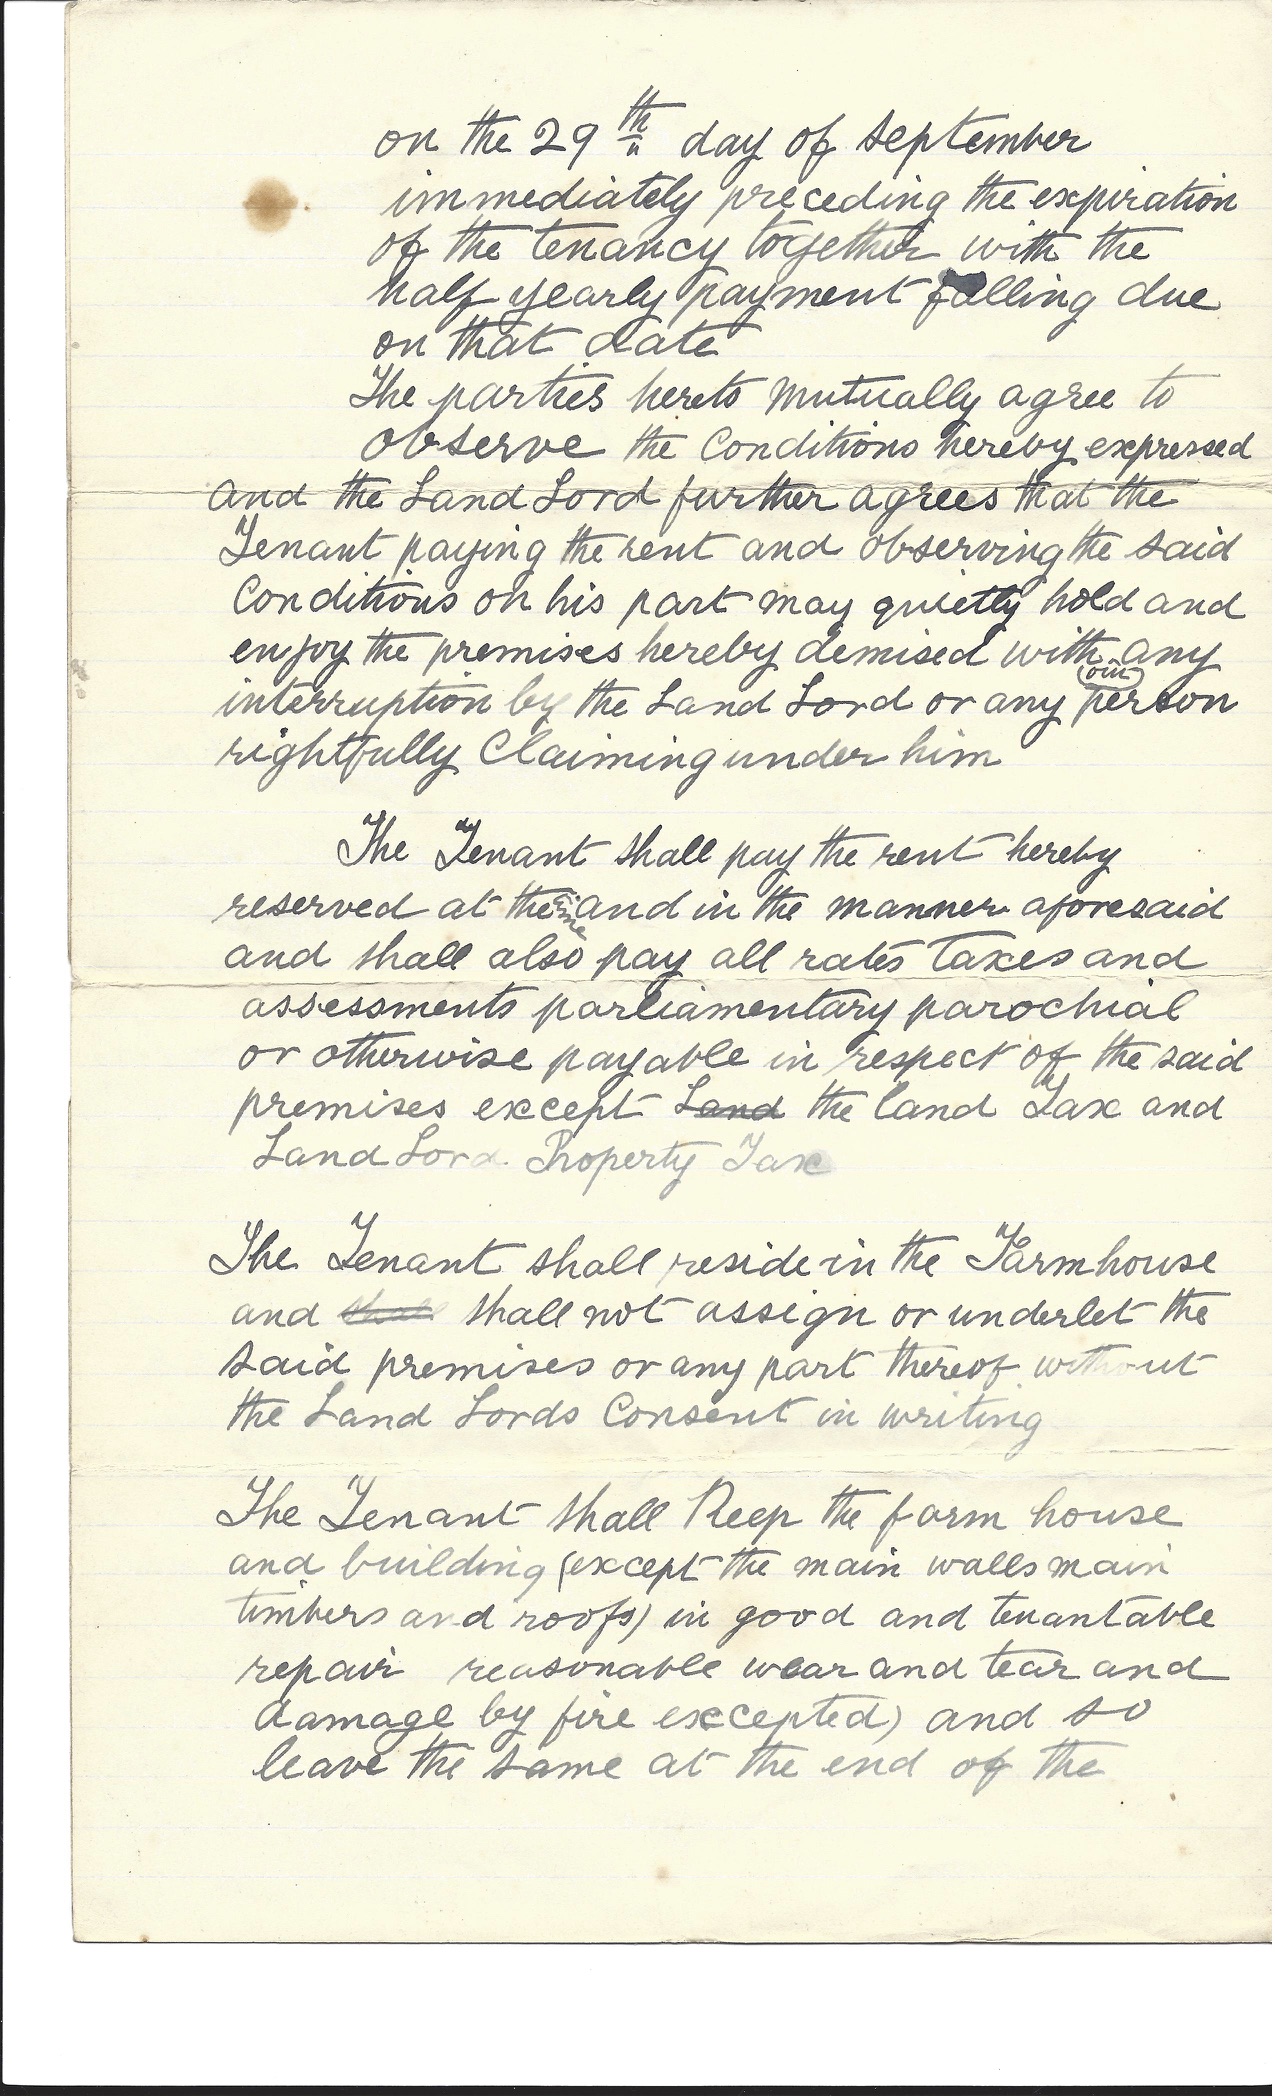 on the 29th day of September
immediately preceding the expiration
of the tenancy together with the
half yearly payment falling due
on that date
The parties hereto mutually agree to
observe the Conditions hereby expressed
and the Land Lord further agrees that the
Tenant paying the rent and observing the said
Conditions on his part may quietly hold and
enjoy the premises hereby demised with any
(out)
interruption by the Land Lord or any person
rightfully Claiming under him
The Tenant shall pay the rent hereby
reserved at the time and in the manner aforesaid
and shall also pay all rates taxes and
assessments parliamentary parochial
or otherwise payable in respect of the said
premises except Land the land Tax and
Land Lord Property Tax
The Tenant shall reside in the Farmhouse
and shall shall not assign or underlet the
said premises or any part thereof without
the Land Lords Consent in writing
The Tenant shall Keep the farm house
and building (except the main walls main
timbers and roofs) in good and tenantable
repair reasonable wear and tear and
damage by fire excepted) and so
leave the same at the end of the